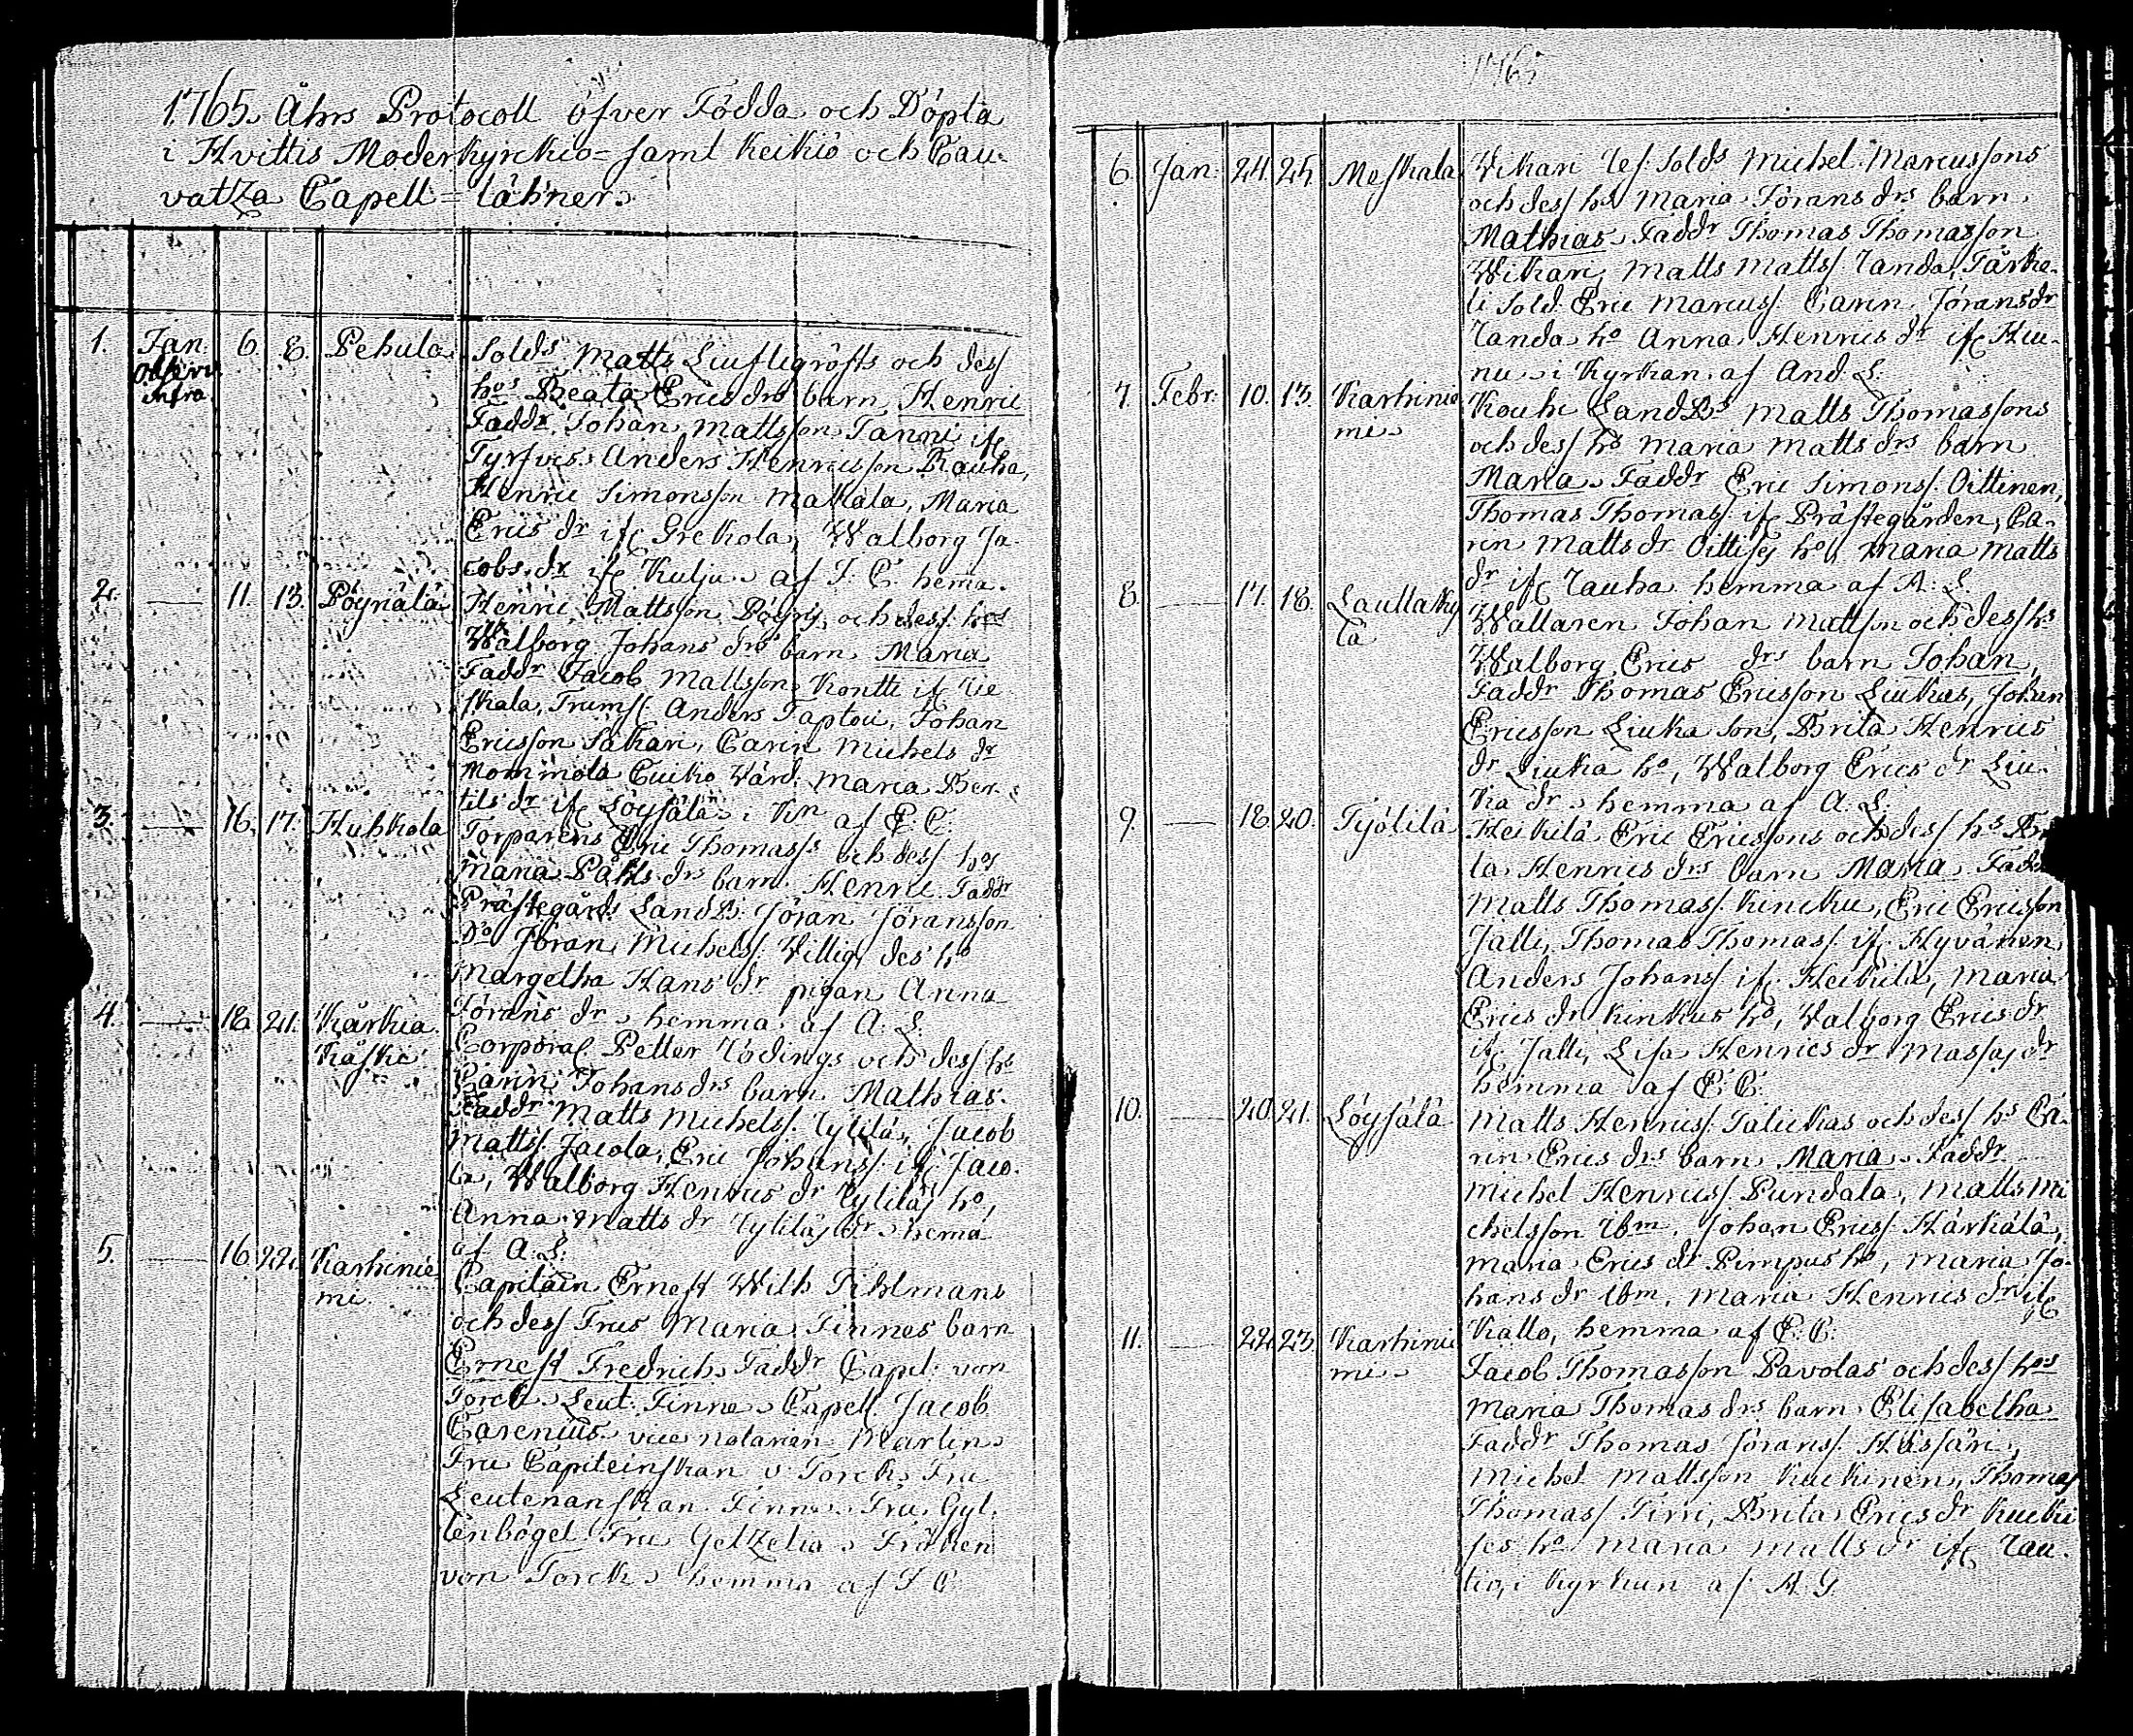 1765. Åhrs Protocoll öfver Födda och Döpta
i Hvittis Moderkyrckio= samt Keikiö och Cau-
vatza Capell= lähner.
1. Jan. 6. 8. Pehula Solds Matts och dess
Observ. infra
hos Beata Erics drs barn Henric
Faddr. Johan Mattsson Tanni if
Tyrfvis. Anders Henricsson Rauha,
Henric Simonsson Makala, Maria
Erics dr if Grekola, Walborg Ja-
cobs dr if Kulju. af J. C. hema.
2. 11. 13. Pöyriälä Henric Mattsson och dess hos
Walborg Johans drs barn Maria
Faddr Jacob Mattsson Kontti if Rie
skala, Trumsl. Anders Taptou, Johan
Ericsson Sakari, Carin Michels dr
Mommola Cuiko värd. Maria Ber-
tils dr if Löysälä i Kn af E. C.
3. 16. 17. Huhkola Torparens Eric Thomass och dess hos
Maria Påhls drs barn Henric Faddr
Prästegårds LandB. Jöran Jöransson
Do Jöran Michelss. Villig, des ho
Margetha Hans dr pigan Anna
Jörans dr. hemma af A. L.
4. 18. 21. Kärkia Käskie Corporal Petter Rödings och dess hs
Carin Johans drs barn Mathias.
Faddr Matts Michelss. Rylilä, Jacob
Mattss. Jacola, Eric Johanss. if Jaco-
la, Walborg Henrics dr Ryliläs ho,
Anna Matts dr Rylilä dr hema
af A. L.
5. 16. 22. Karhinie
mi Capitain Ernest Wilh. Tihlmans
och dess Frus Maria Finnes barn
Ernest Fredrich. Faddr Capit. von
Torck. Leut. Finne. Capell. Jacob
Carenius. vice notarien Martin.
Fru Capiteinskan v. Torck. Fru
Leutenanskan Finne. Fru Gyl-
lenbögel Fru Geltzelia. Fröken
von Torck. hemma af J C
1765
6. Jan. 24. 25. Meskala Wikari Res. Solds Michel Marcussons
och dess hs Maria Jörans drs barn
Mathias. Faddr Thomas Thomasson
Wikari, Matts Mattss. Randa, Färke-
li Sold. Eric Marcuss. Carin Jörans dr
Randa ho Anna Henrics dr if Huu-
nu. i Kyrkan. af And. L.
7. Febr. 10. 13. Karhinie
mi. Kouhi LandBs Matts Thomassons
och dess hs Maria Matts drs barn
Maria. Faddr Eric Simonss. Oittinen,
Thomas Thomass if Prästegården, Ca-
rin Matts dr Oittisej ho, Maria Matts
dr if Rauha hemma af A. L.
8. 17. 18. Lauttaky
la Wallaren Johan Mattson och dess hs
Walborg Erics drs barn Johan,
Faddr Thomas Ericsson Liukas, Johan
Ericsson Liuka son, Brita Henrics
dr Liuka ho, Walborg Erics dr Liu-
ka dr. hemma af A. L.
9. 18. 20. Työlilä Heikilä Eric Ericssons och dess hs Bri
ta Henrics drs barn Maria Fadd
Matts Thomass. Kincku, Eric Ericsson
Jalli, Thomas Thomass. if Hyvänen,
Anders Johanss if Heikilä, Maria
Erics dr Kinkus ho, Valborg Erics dr
if Jalli, Lisa Henrics dr Massas dr
hemma af E. C.
10. 20. 21. Löysälä Matts Henricss. Talickas och dess hs Ca-
rin Erics drs barn Maria. Faddr
Michel Henricss. Pundala, Matts Mi
chelsson ibm, Johan Ericss. Härkälä,
Maria Erics dr Pimpus ho, Maria Jo-
hans dr ibm, Maria Henrics dr if
Kallo, hemma af E. C.
11. 22. 23. Karhinie
mi. Jacob Thomasson Pavolas och dess hos
Maria Thomas drs barn Elisabetha
Faddr Thomas Jöranss. Hussari,
Michel Mattsson Kuckinen, Thomas
Thomass Firri, Brita Erics dr Kucki
ses ho Maria Matts dr if Rau-
tio, i Kyrkan af A. G.